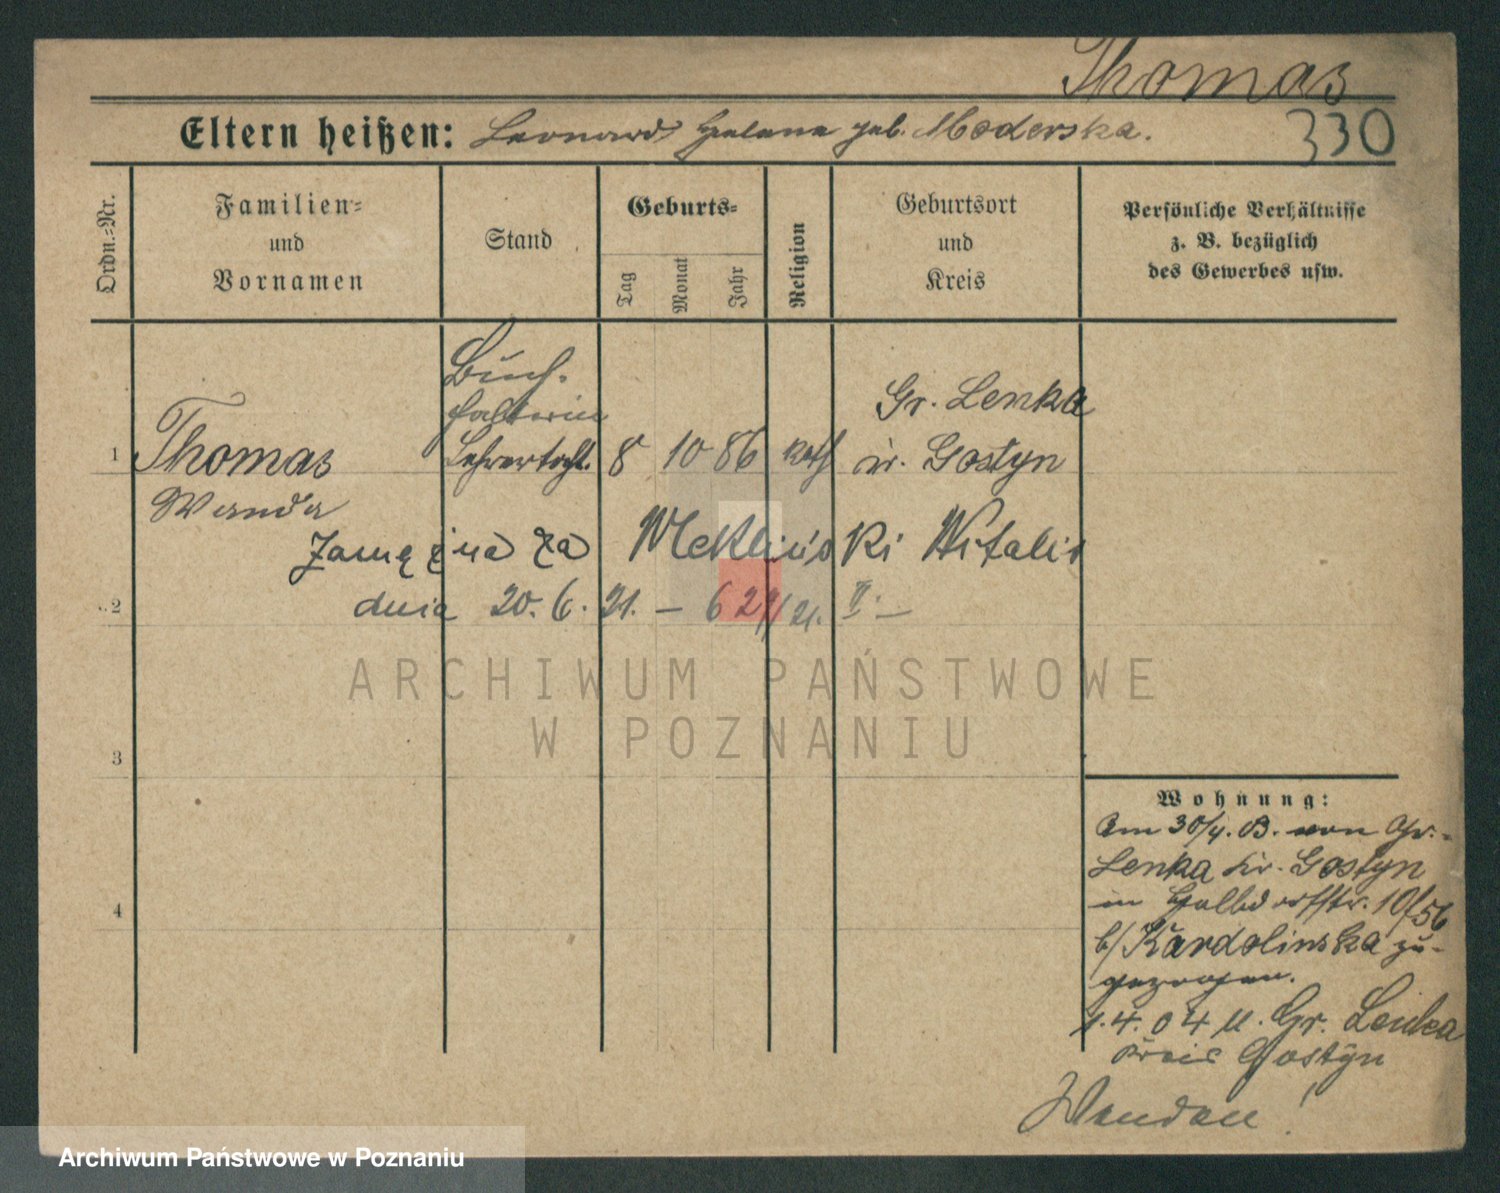 Thomas
Eltern heißen: Leonard Helene geb. Moderska.
330
Ordn.-Nr.
Familien-
und
Vornamen
Stand
Geburts-
Tag
Monat
Jahr
Religion
Geburtsort
und
Kreis
Persönliche Verhältnisse
z. B. bezüglich
des Gewerbes usw.
Buch-
halterin
Gr. Lenka
1 Thomas Lehrertocht. 8 10 86 kath Kr. Gostyn
Wanda
Zamężna za Mekliński Witalis
2 dnia 20. 6. 21. – 21. II. –
ARCHIWUM PAŃSTWOWE
W POZNANIU
3
4
Wohnung:
Am 30/4. 03. von Gr.-
Lenka Kr. Gostyn
in Halbdorfstr. 10/56
b/ Kardolinska zu-
gezogen.
1.4.04 n. Gr. Lenka
Kreis Gostyn
Archiwum Państwowe w Poznaniu